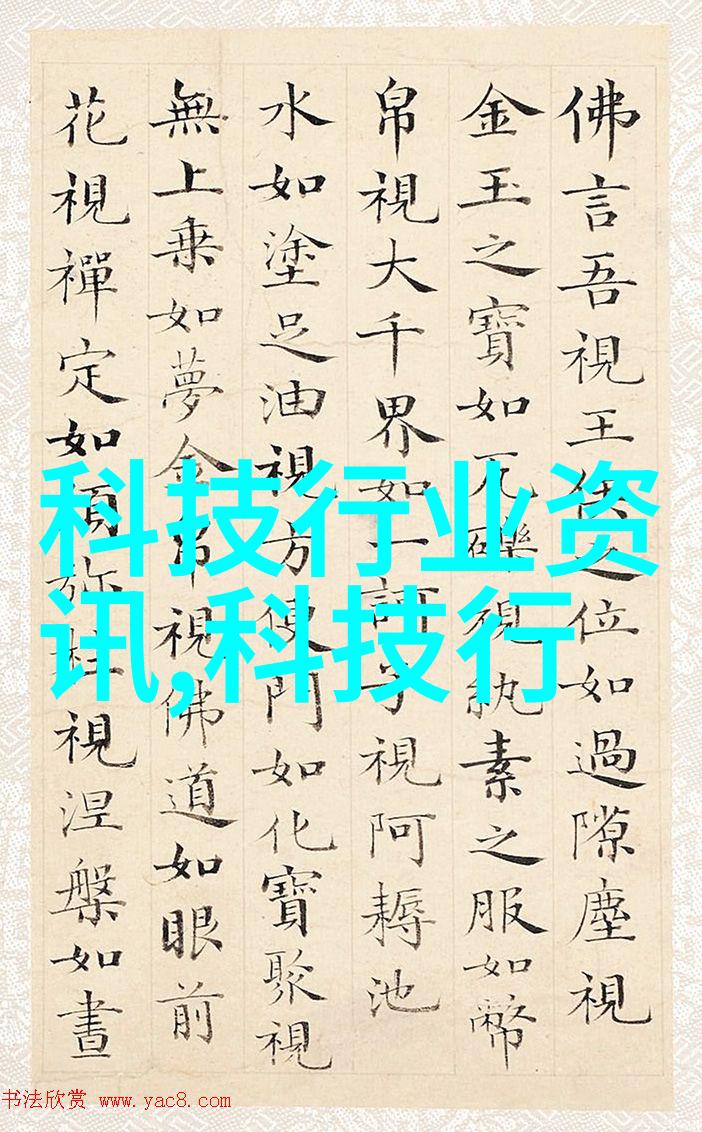 佛言吾視王侯之位如過隙塵視
金玉之寶如瓦礫視紈素之服如幣
帛視大千界如一訶子視阿耨池
水如塗足油視方便門如化寶聚視
無上乗如夢金帛視佛道如眼前
花視禪定如須弥柱視涅槃如晝
科技行业资
讯,科技行
书法欣赏 www.yac8.com